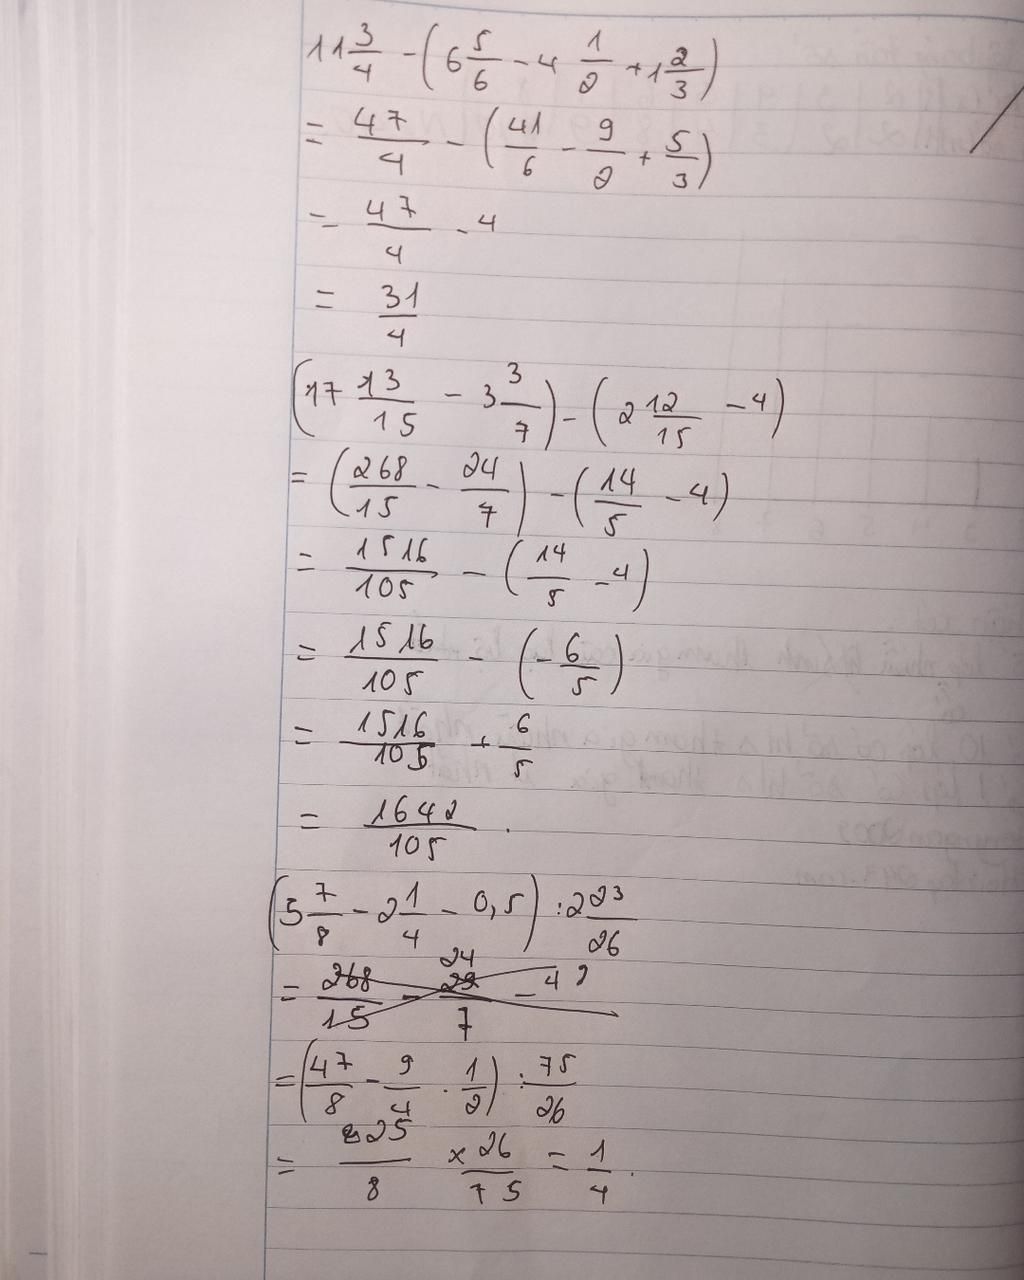 11 3/4 - (6 5/6 - 4 1/2 + 1 2/3)
= 47/4 - (41/6 - 9/2 + 5/3)
= 47/4 - 4
= 31/4
(17 13/15 - 3 3/7) - (2 12/15 - 4)
= (268/15 - 24/7) - (14/5 - 4)
= 1516/105 - (14/5 - 4)
= 1516/105 - (-6/5)
= 1516/105 + 6/5
= 1642/105 .
(5 7/8 - 2 1/4 - 0,5) : 2 23/26
= 268/15 - 24/7 - 4
= (47/8 - 9/4 . 1/2) : 75/26
= 25/8 x 26/75 = 1/4 .